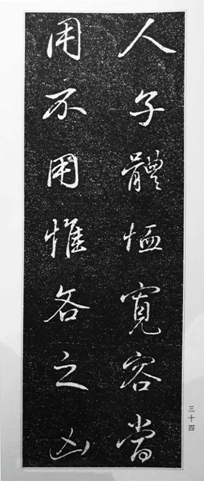 人子體恤寬容當
用不用惟各之凶
三十四